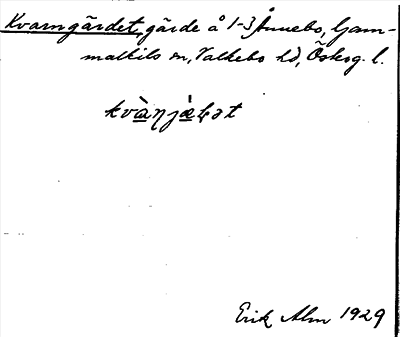 Kvarngärdet, gärde å 1-3 Ånnebo, Gam-
malkils sn, Valkebo hd, Österg. l.
kvàŋjælət
Erik Alm 1929